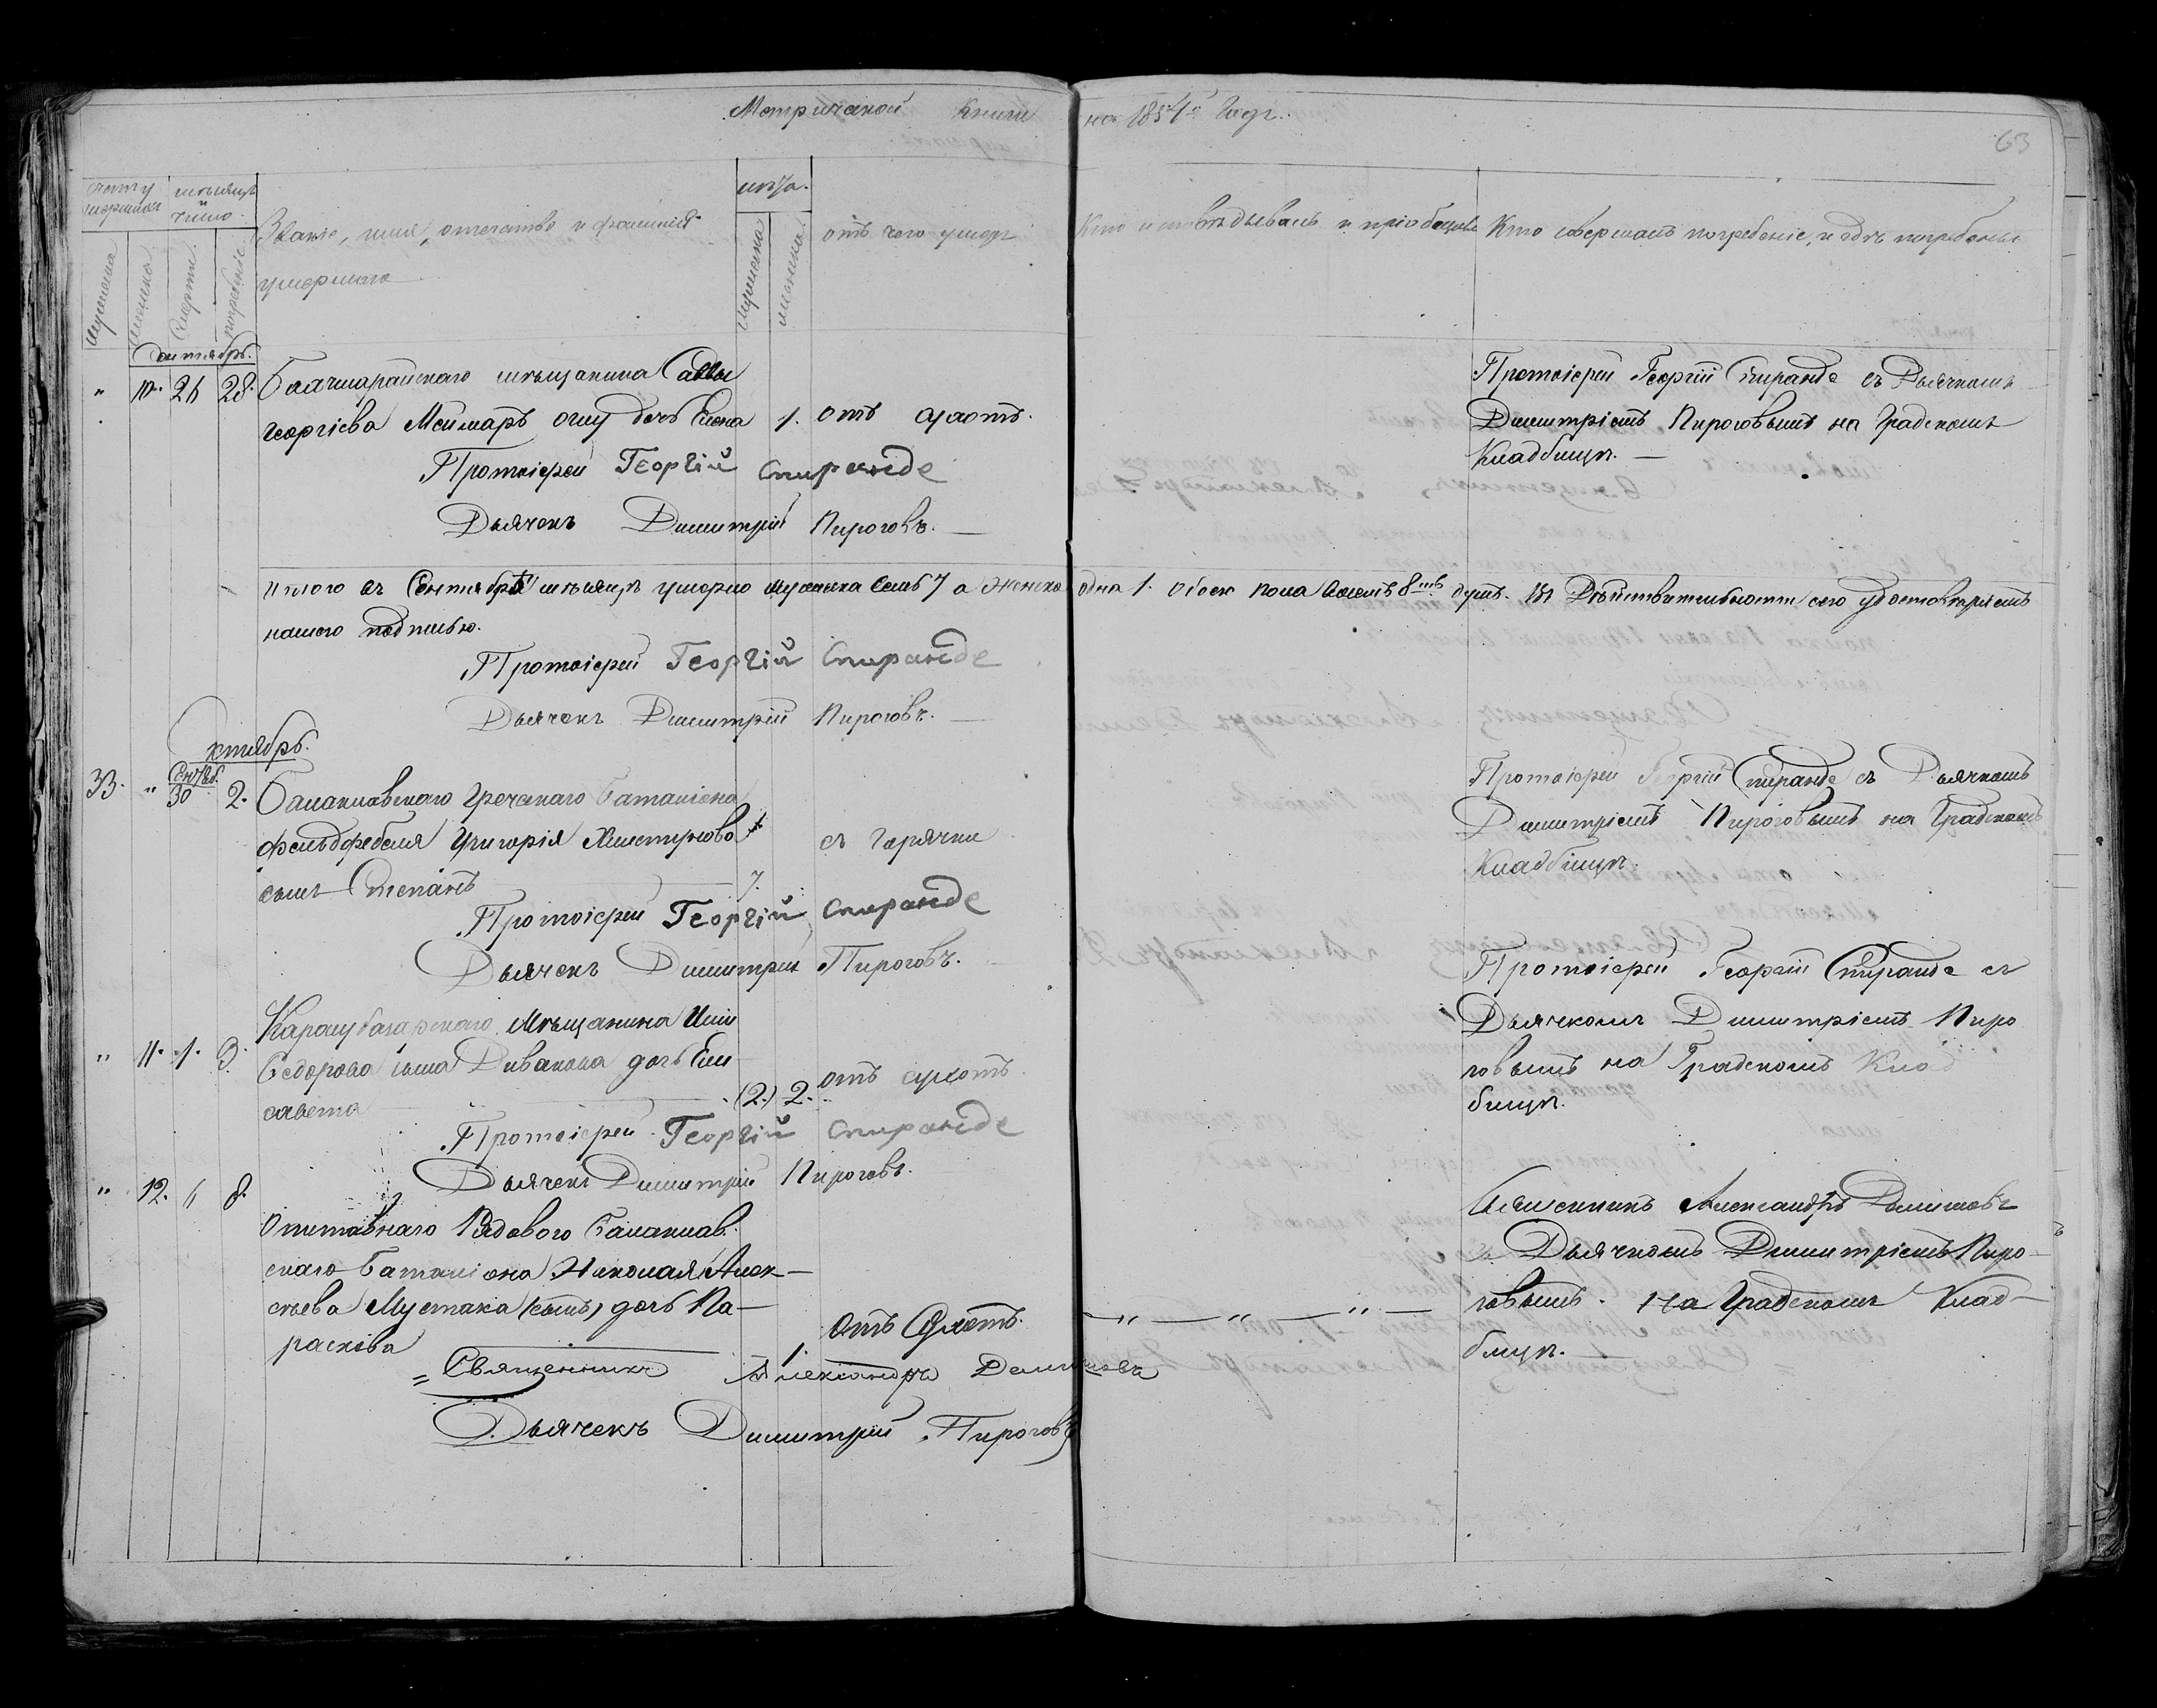 Метрической Книги на 1854й Годъ.
63
счету умершихъ
мѣсяцъ и число.
лѣта.
Мужеска
Женска
Смерти.
погребенiе
Званiе, имя, отечество и фамилiя умершаго
Мужеска
Женска
отъ чего умеръ
Кто исповѣдывалъ и прiобщалъ
Кто совершалъ погребенiе, и гдѣ погребены
Сентябрь.
" 10. 26 28. Бахчисарайскаго мѣщанина Саввы
Георгiева Меимаръ дочь Елена 1. отъ сухотъ.
Протоiерей Георгiй Спиранде съ Дьячкомъ
Димитрiемъ Пироговымъ на Градскомъ
Кладбищѣ. —
Протоiерей Георгiй Спиранде
Дьячекъ Димитрiй Пироговъ. —
Итого въ Сентябрѣ мѣсяцѣ умерло мужеска семь 7 а Женска одна 1. обоего пола восемь 8мь душъ. Въ Дѣйствительности сего удостовѣряемъ
нашею подписью.
Протоiерей Георгiй Спиранде
Дьячекъ Димитрiй Пироговъ. —
Октябрь.
33. " Сентяб. 30 2. Балаклавскаго Греческаго Баталiона
фельдфебеля Григорiя
сынъ Степанъ 7. съ горячки
Протоiерей Георгiй Спиранде съ Дьячкомъ
Димитрiемъ Пироговымъ на Градскомъ
Кладбищѣ.
Протоiерей Георгiй Спиранде
Дьячекъ Димитрiй Пироговъ.
" 11. 1. 3. Карасубазарскаго Мѣщанина
Ѳедорова сына Дивакова дочь Ели-
савета (2.) 2. отъ сухотъ.
Протоiерей Георгiй Спиранде съ
Дьячкомъ Димитрiемъ Пиро
говымъ на Градскомъ Клад
бищѣ.
Протоiерей Георгiй Спиранде
Дьячекъ Димитрiй Пироговъ.
" 12. 6 8.
Отставнаго Рядоваго Балаклав.
скаго Баталiона Николая Алек—
сѣева Мустака дочь Па—
раскева 1. отъ Сухотъ. — " — " — " —
Священникъ Александръ Демяновъ
съ Дьячкомъ Димитрiемъ Пиро—
говымъ. На Градскомъ Клад—
бищѣ.
= Священникъ Александръ Демяновъ
Дьячекъ Димитрiй Пироговъ